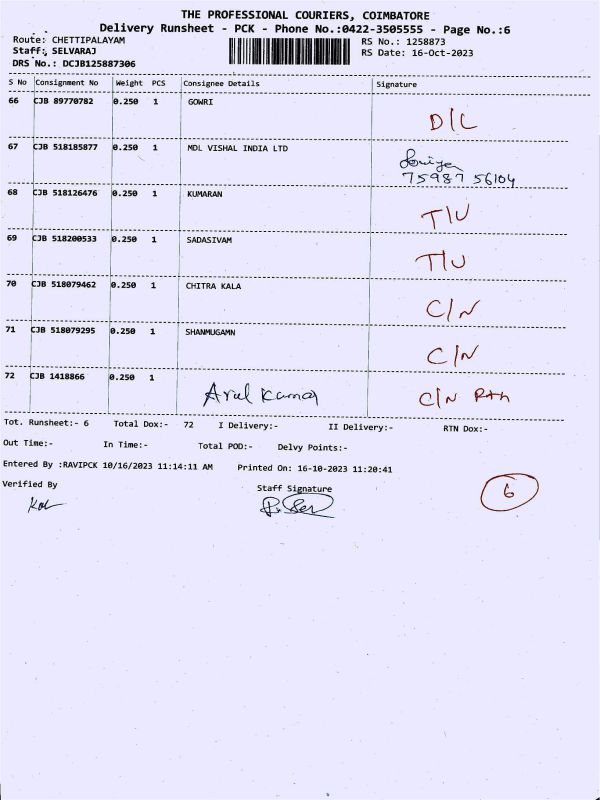 THE PROFESSIONAL COURIERS, COIMBATORE
Delivery Runsheet - PCK - Phone No.:0422-3505555 - Page No.:6
Route: CHETTIPALAYAM RS No.: 1258873
Staff: SELVARAJ RS Date: 16-Oct-2023
DRS No.: DCJB125887306
S No Consignment No Weight PCS Consignee Details Signature
66 CJB 89770782 0.250 1 GOWRI
D/L
67 CJB 518185877 0.250 1 MDL VISHAL INDIA LTD
75987 56104
68 CJB 518126476 0.250 1 KUMARAN
T/U
69 CJB 518200533 0.250 1 SADASIVAM
T/U
70 CJB 518079462 0.250 1 CHITRA KALA
C/N
71 CJB 518079295 0.250 1 SHANMUGAMN
C/N
72 CJB 1418866 0.250 1
Arul Kumar C/N
Tot. Runsheet:- 6 Total Dox:- 72 I Delivery:- II Delivery:- RTN Dox:-
Out Time:- In Time:- Total POD:- Delvy Points:-
Entered By :RAVIPCK 10/16/2023 11:14:11 AM Printed On: 16-10-2023 11:20:41
Verified By Staff Signature
6